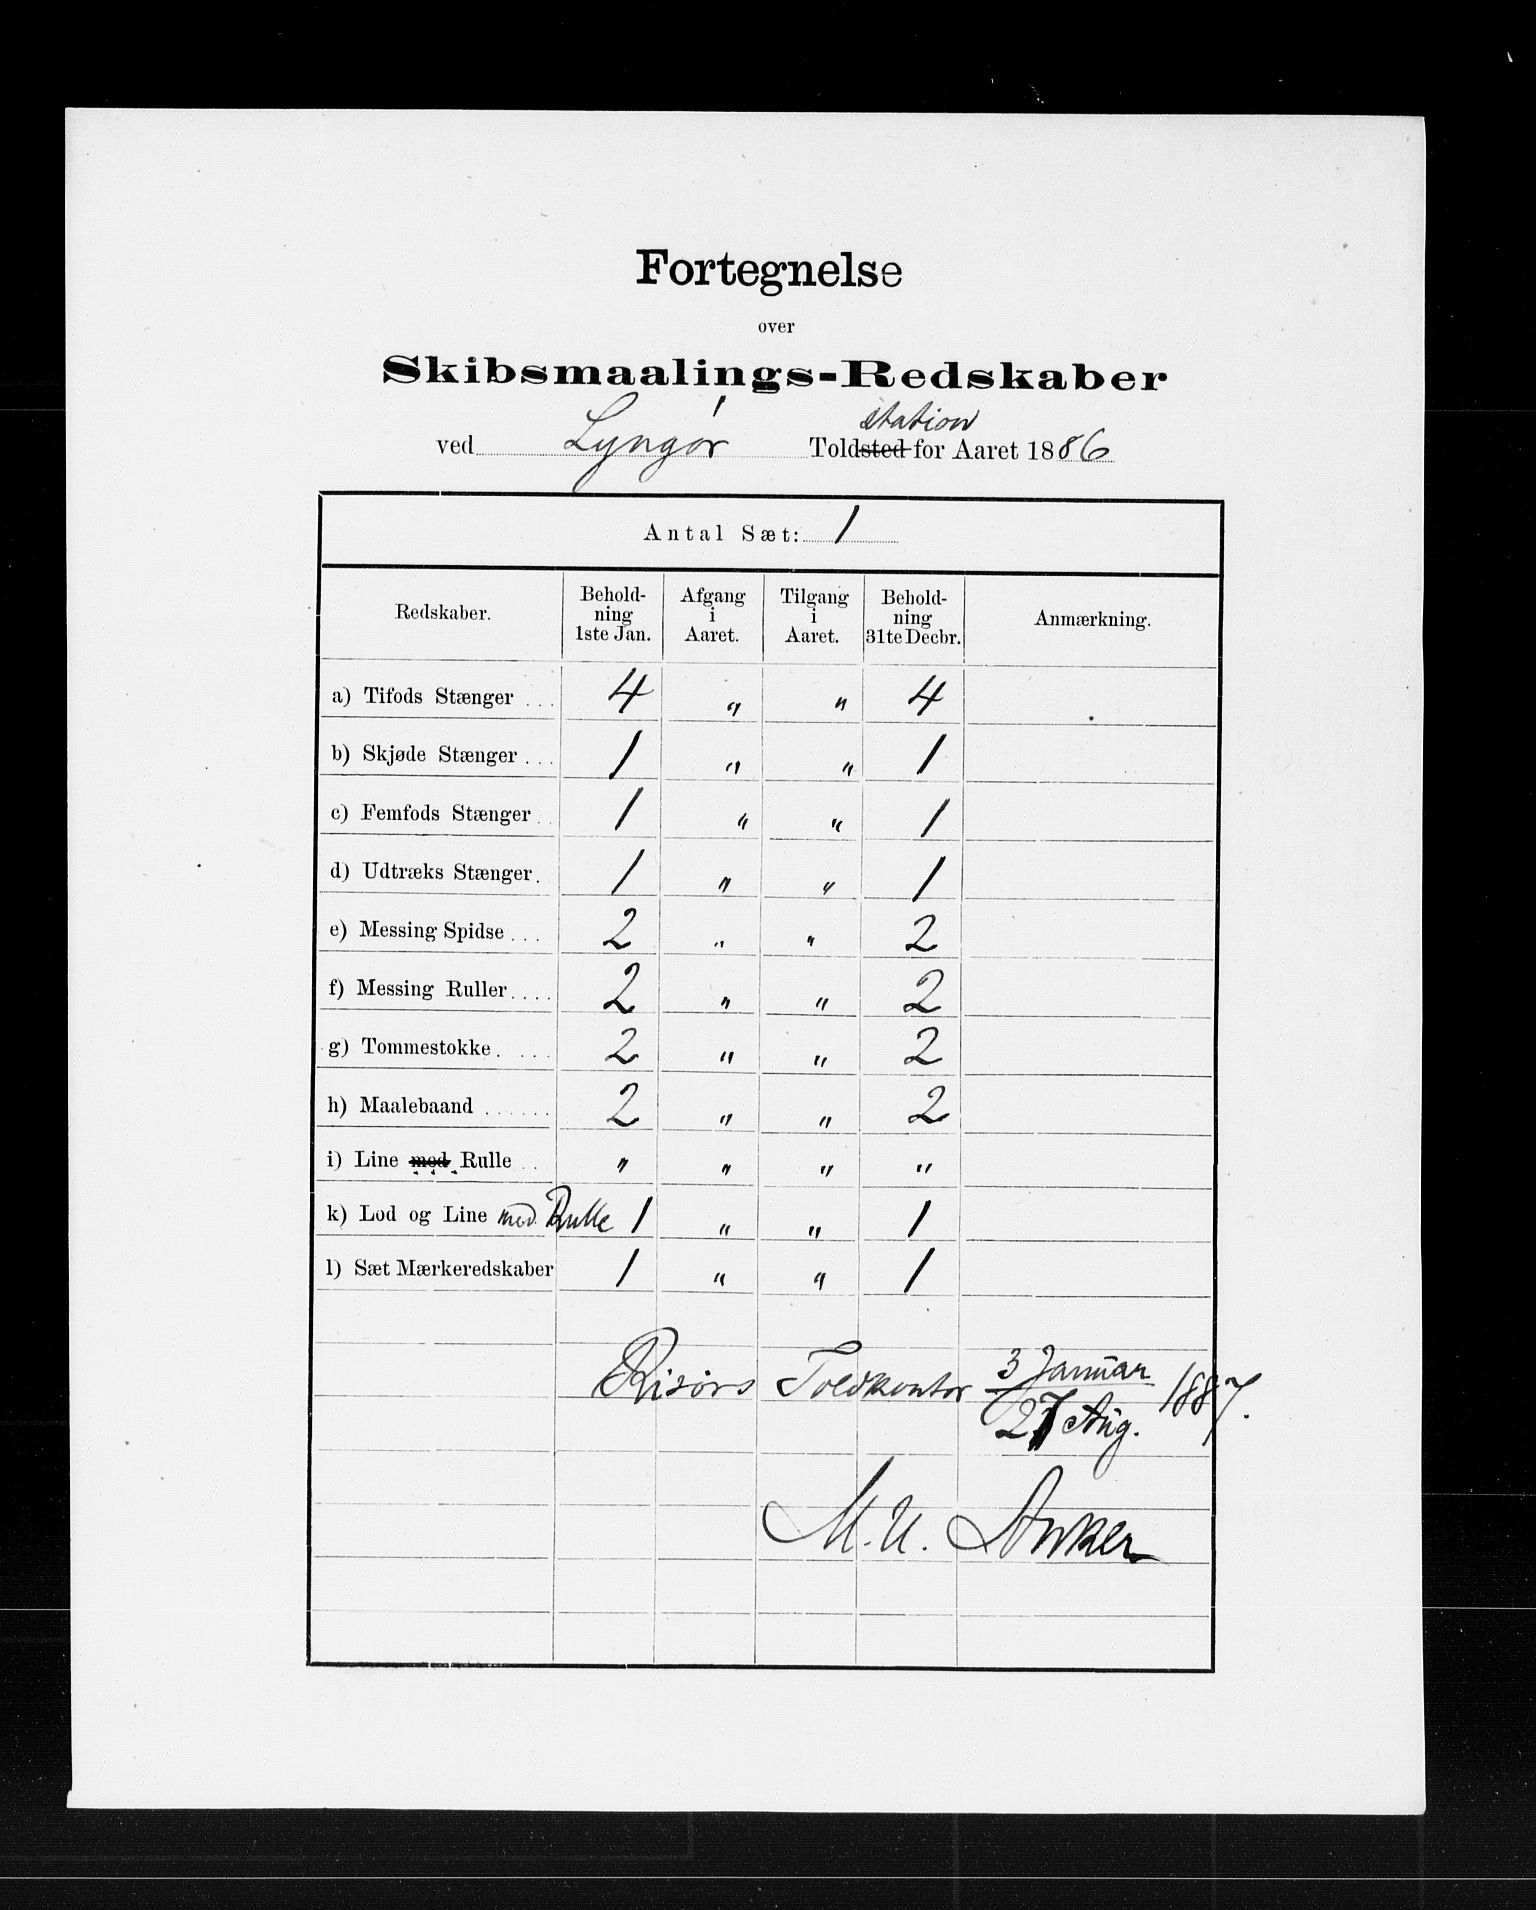 Fortegnelse
over
Skibsmaalings-Redskaber
station
ved Lyngør Toldsted for Aaret 1886
Antal Sæt: 1
Redskaber. Beholdning 1ste Jan. Afgang i Aaret. Tilgang i Aaret. Beholdning 31te Decbr. Anmærkning.
a) Tifods Stænger . . . 4 " " 4
b) Skjøde Stænger . . . 1 " " 1
c) Femfods Stænger . . 1 " " 1
d) Udtræks Stænger . 1 " " 1
e) Messing Spidse . . . 2 " " 2
f) Messing Ruller . . . . 2 " " 2
g) Tommestokke . . . . 2 " " 2
h) Maalebaand . . . . . . 2 " " 2
i) Line med Rulle . . " " " "
k) Lod og Line med Rulle 1 " " 1
l) Sæt Mærkeredskaber 1 " " 1
Risørs Toldkontor 3 Januar 1887.
27 Aug.
M. U. Anker